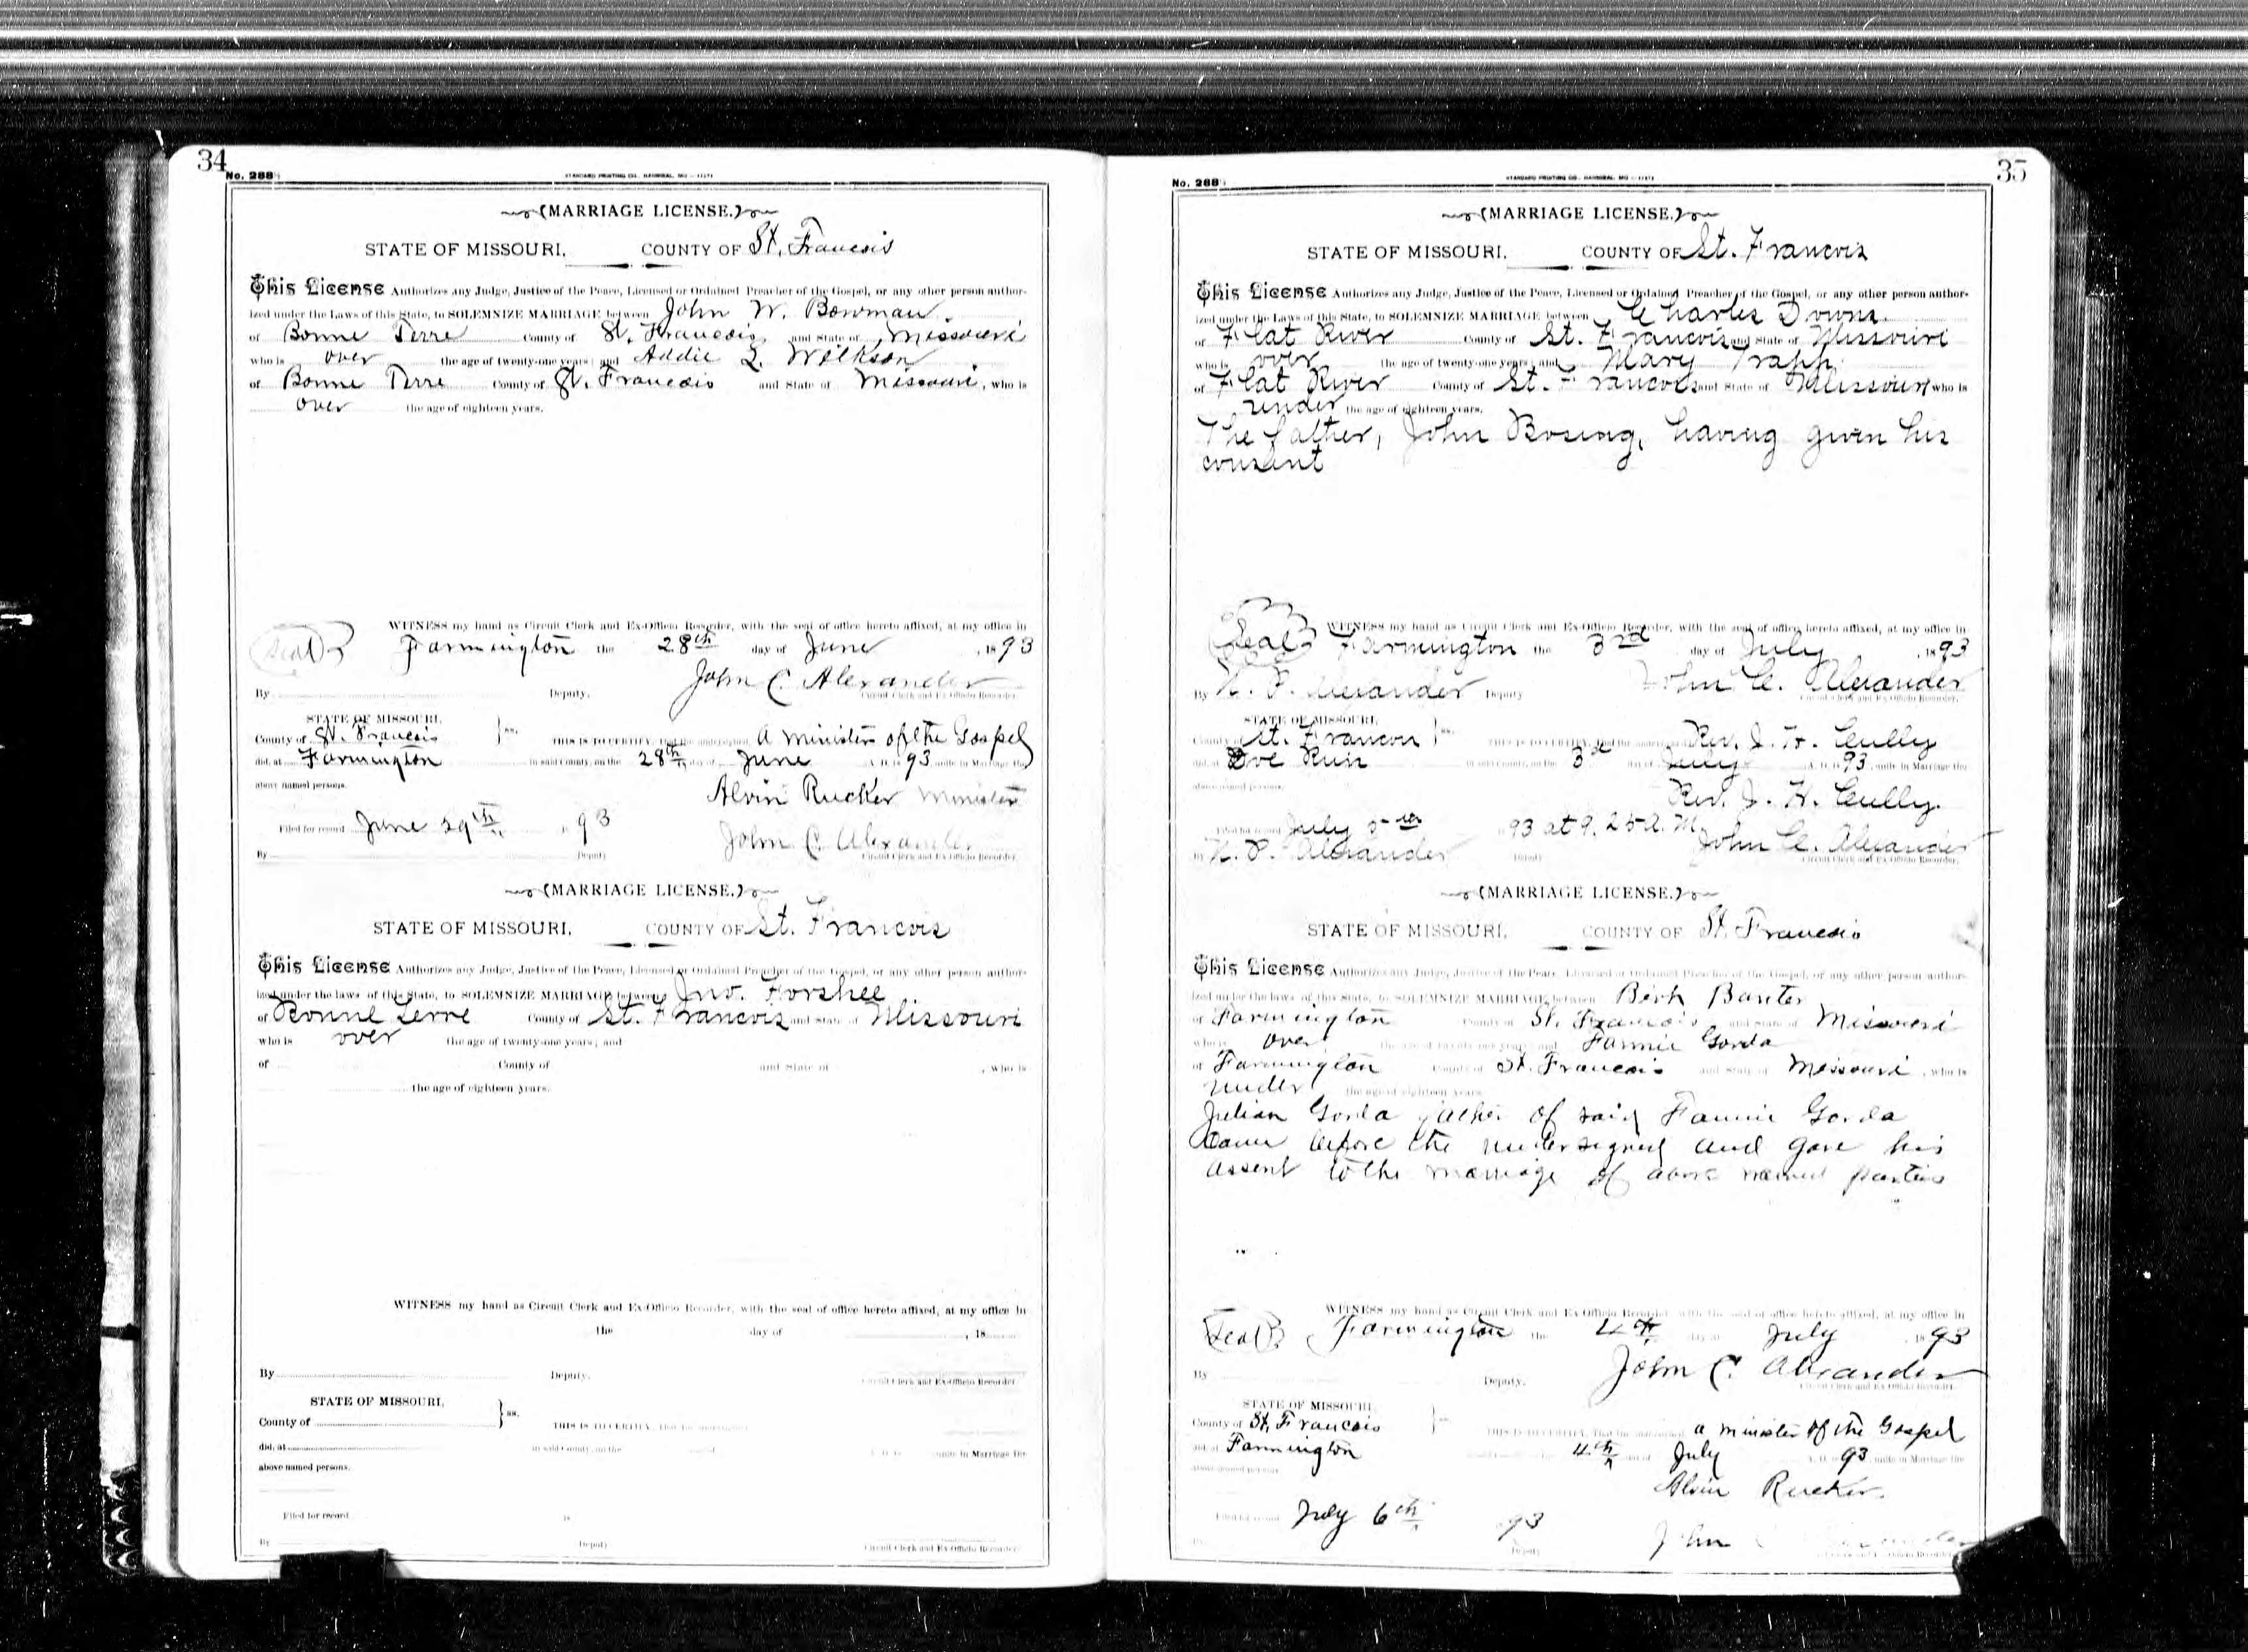 34
No. 288
STANDARD PRINTING CO., HANNIBAL, MO
(MARRIAGE LICENSE.)
STATE OF MISSOURI, COUNTY OF St. Francois
This License Authorizes any Judge, Justice of the Peace, Licensed or Ordained Preacher of the Gospel, or any other person author-
ized under the Laws of this State, to SOLEMNIZE MARRIAGE between John W. Bowman.
of Bonne Terre County of St. Francois and State of Missouri
who is over the age of twenty-one years; and Addie L. Wilkson
of Bonne Terre County of St. Francois and State of Missouri, who is
over the age of eighteen years.
WITNESS my hand as Circuit Clerk and Ex-Officio Recorder, with the seal of office hereto affixed, at my office in
Seal Farmington the 28th day of June, 1893
John C. Alexander
By Deputy. Circuit Clerk and Ex-Officio Recorder.
STATE OF MISSOURI,
County of St. Francois ss. THIS IS TO CERTIFY, That the undersigned a minister of the Gospel
did, at Farmington in said County, on the 28th day of June A. D. 1893 unite in Marriage the
above named persons. Alvin Rucker Minister
Filed for record June 29th 1893
John C. Alexander
By Deputy Circuit Clerk and Ex-Officio Recorder.
(MARRIAGE LICENSE.)
STATE OF MISSOURI, COUNTY OF St. Francois
This License Authorizes any Judge, Justice of the Peace, Licensed or Ordained Preacher of the Gospel, or any other person author-
ized under the laws of this State, to SOLEMNIZE MARRIAGE between Jno. Forshee
of Bonne Terre County of St. Francois and State of Missouri
who is over the age of twenty-one years; and
of County of and State of , who is
the age of eighteen years.
WITNESS my hand as Circuit Clerk and Ex-Officio Recorder, with the seal of office hereto affixed, at my office in
the day of , 18
By Deputy. Circuit Clerk and Ex-Officio Recorder
STATE OF MISSOURI,
County of ss. THIS IS TO CERTIFY, That the undersigned
did, at in said County, on the day of A. D. 18 unite in Marriage the
above named persons.
Filed for record 18
By Deputy Circuit Clerk and Ex-Officio Recorder.
35
No. 288
STANDARD PRINTING CO., HANNIBAL, MO
(MARRIAGE LICENSE.)
STATE OF MISSOURI, COUNTY OF St. Francois
This License Authorizes any Judge, Justice of the Peace, Licensed or Ordained Preacher of the Gospel, or any other person author-
ized under the Laws of this State, to SOLEMNIZE MARRIAGE between Charles Downs.
of Flat River County of St. Francois and State of Missouri
who is over the age of twenty-one years; and Mary Trapp
of Flat River County of St. Francois and State of Missouri who is
under the age of eighteen years.
The father, John Bosing, having given his
consent
WITNESS my hand as Circuit Clerk and Ex-Officio Recorder, with the seal of office hereto affixed, at my office in
Seal Farmington the 3rd day of July, 1893
By N. P. Alexander Deputy John C. Alexander
Circuit Clerk and Ex-Officio Recorder.
STATE OF MISSOURI,
County of St. Francois ss. THIS IS TO CERTIFY, That the undersigned Rev. J. H. Cully
did, at Doe Run in said County, on the 3rd day of July A. D. 1893 unite in Marriage the
above named persons. Rev. J. H. Cully.
Filed for record July 5th 1893 at 9.25 A. M.
By N. P. Alexander Deputy John C. Alexander
Circuit Clerk and Ex-Officio Recorder.
(MARRIAGE LICENSE.)
STATE OF MISSOURI, COUNTY OF St. Francois
This License Authorizes any Judge, Justice of the Peace, Licensed or Ordained Preacher of the Gospel, or any other person author-
ized under the laws of this State, to SOLEMNIZE MARRIAGE between Birk Baxter
of Farmington County of St. Francois and State of Missouri
who is over the age of twenty-one years; and Fannie Gorda
of Farmington County of St. Francois and State of Missouri, who is
under the age of eighteen years
Julian Gorda father of said Fannie Gorda
came before the undersigned and gave his
assent to the marriage of above named parties
WITNESS my hand as Circuit Clerk and Ex-Officio Recorder, with the seal of office hereto affixed, at my office in
Seal Farmington the 4th day of July 1893
John C. Alexander
By Deputy. Circuit Clerk and Ex-Officio Recorder.
STATE OF MISSOURI,
County of St. Francois THIS IS TO CERTIFY, That the undersigned a minister of the Gospel
did, at Farmington 4th day of July A. D. 1893 unite in Marriage the
above named persons Alvin Rucker.
Filed for record July 6th 1893
John
Deputy Circuit Clerk and Ex-Officio Recorder